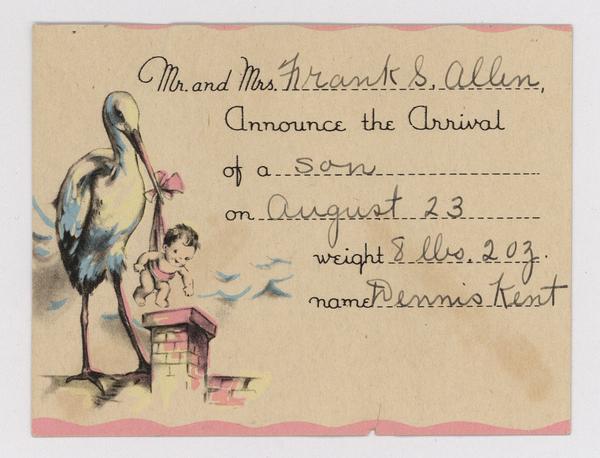 Mr. and Mrs. Frank S. Allen,
Announce the Arrival
of a son
on August 23
weight 8 lbs. 2 oz.
name Dennis Kent